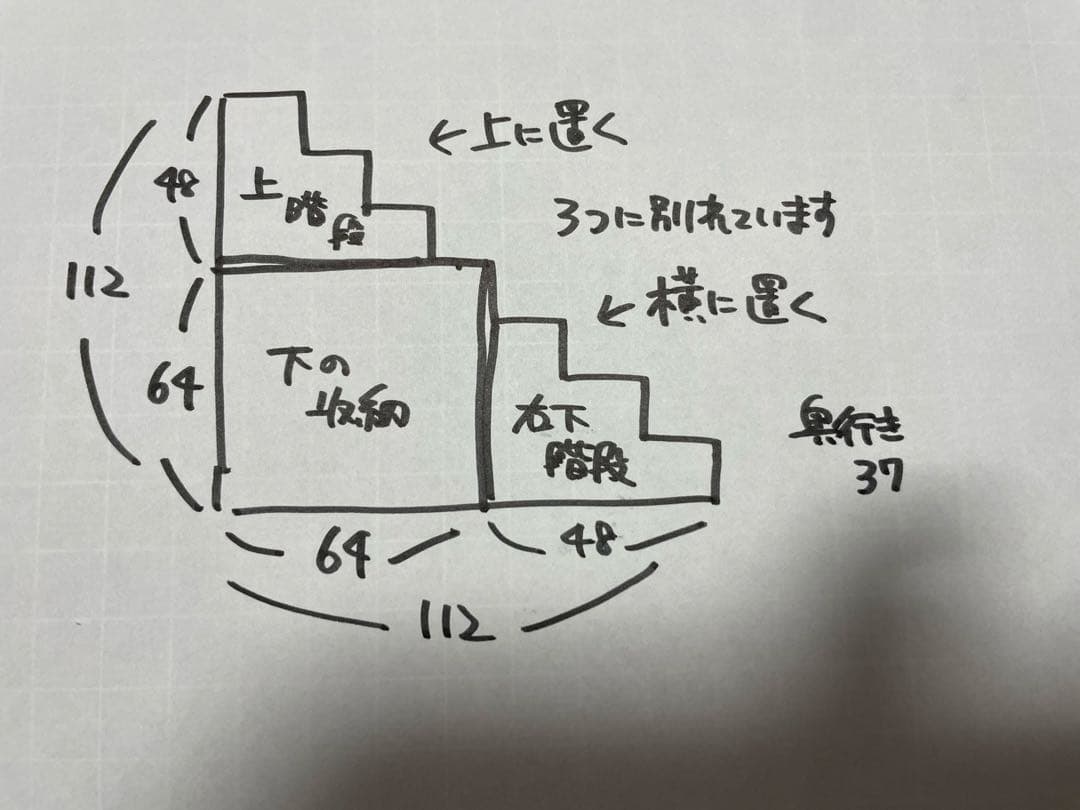 ←上に置く
48
上
階
段
3つに別れています
112
←横に置く
64
下の
収納
右下
階段
奥行き
37
64
48
112